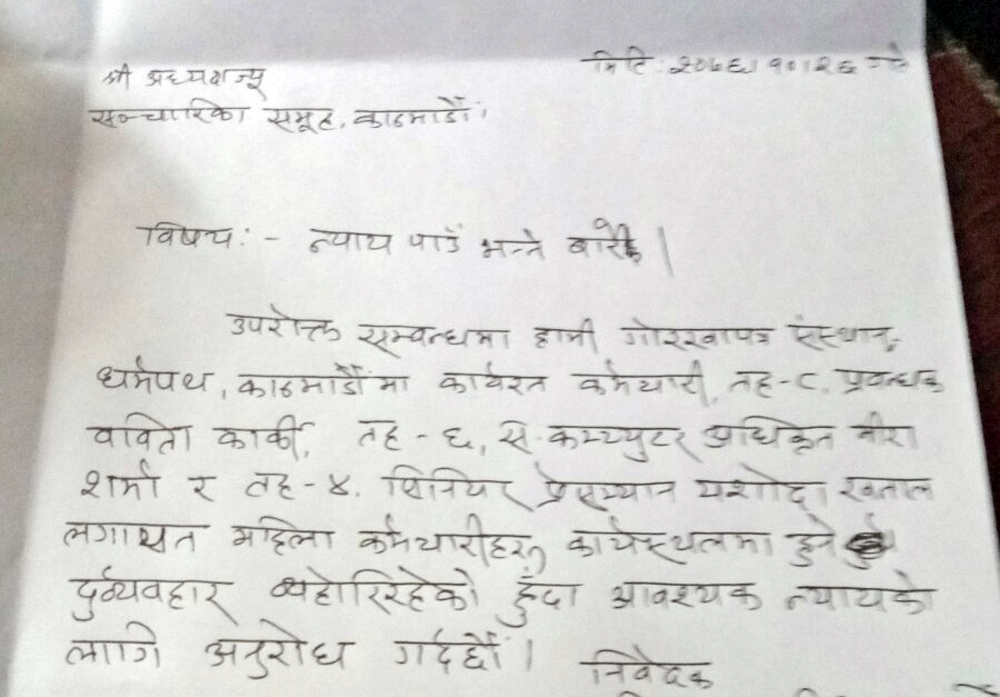 श्री अध्यक्षज्यू
मिति: २०७६।१०।२६ गते
सञ्चारिका समूह, काठमाडौं।
विषय:- न्याय पाउँ भन्ने बारे।
उपरोक्त सम्बन्धमा हामी गोरखापत्र संस्थान,
धर्मपथ, काठमाडौंमा कार्यरत कर्मचारी, तह-८, प्रबन्धक
वविता कार्की, तह-६, स. कम्प्युटर अधिकृत मीरा
शर्मा र तह-४. सिनियर प्रेसम्यान यशोदा खनाल
लगायत महिला कर्मचारीहरु कार्यस्थलमा हुने
दुर्व्यवहार व्यहोरिरहेको हुँदा आवश्यक न्यायको
लागि अनुरोध गर्दछौं।
निवेदक